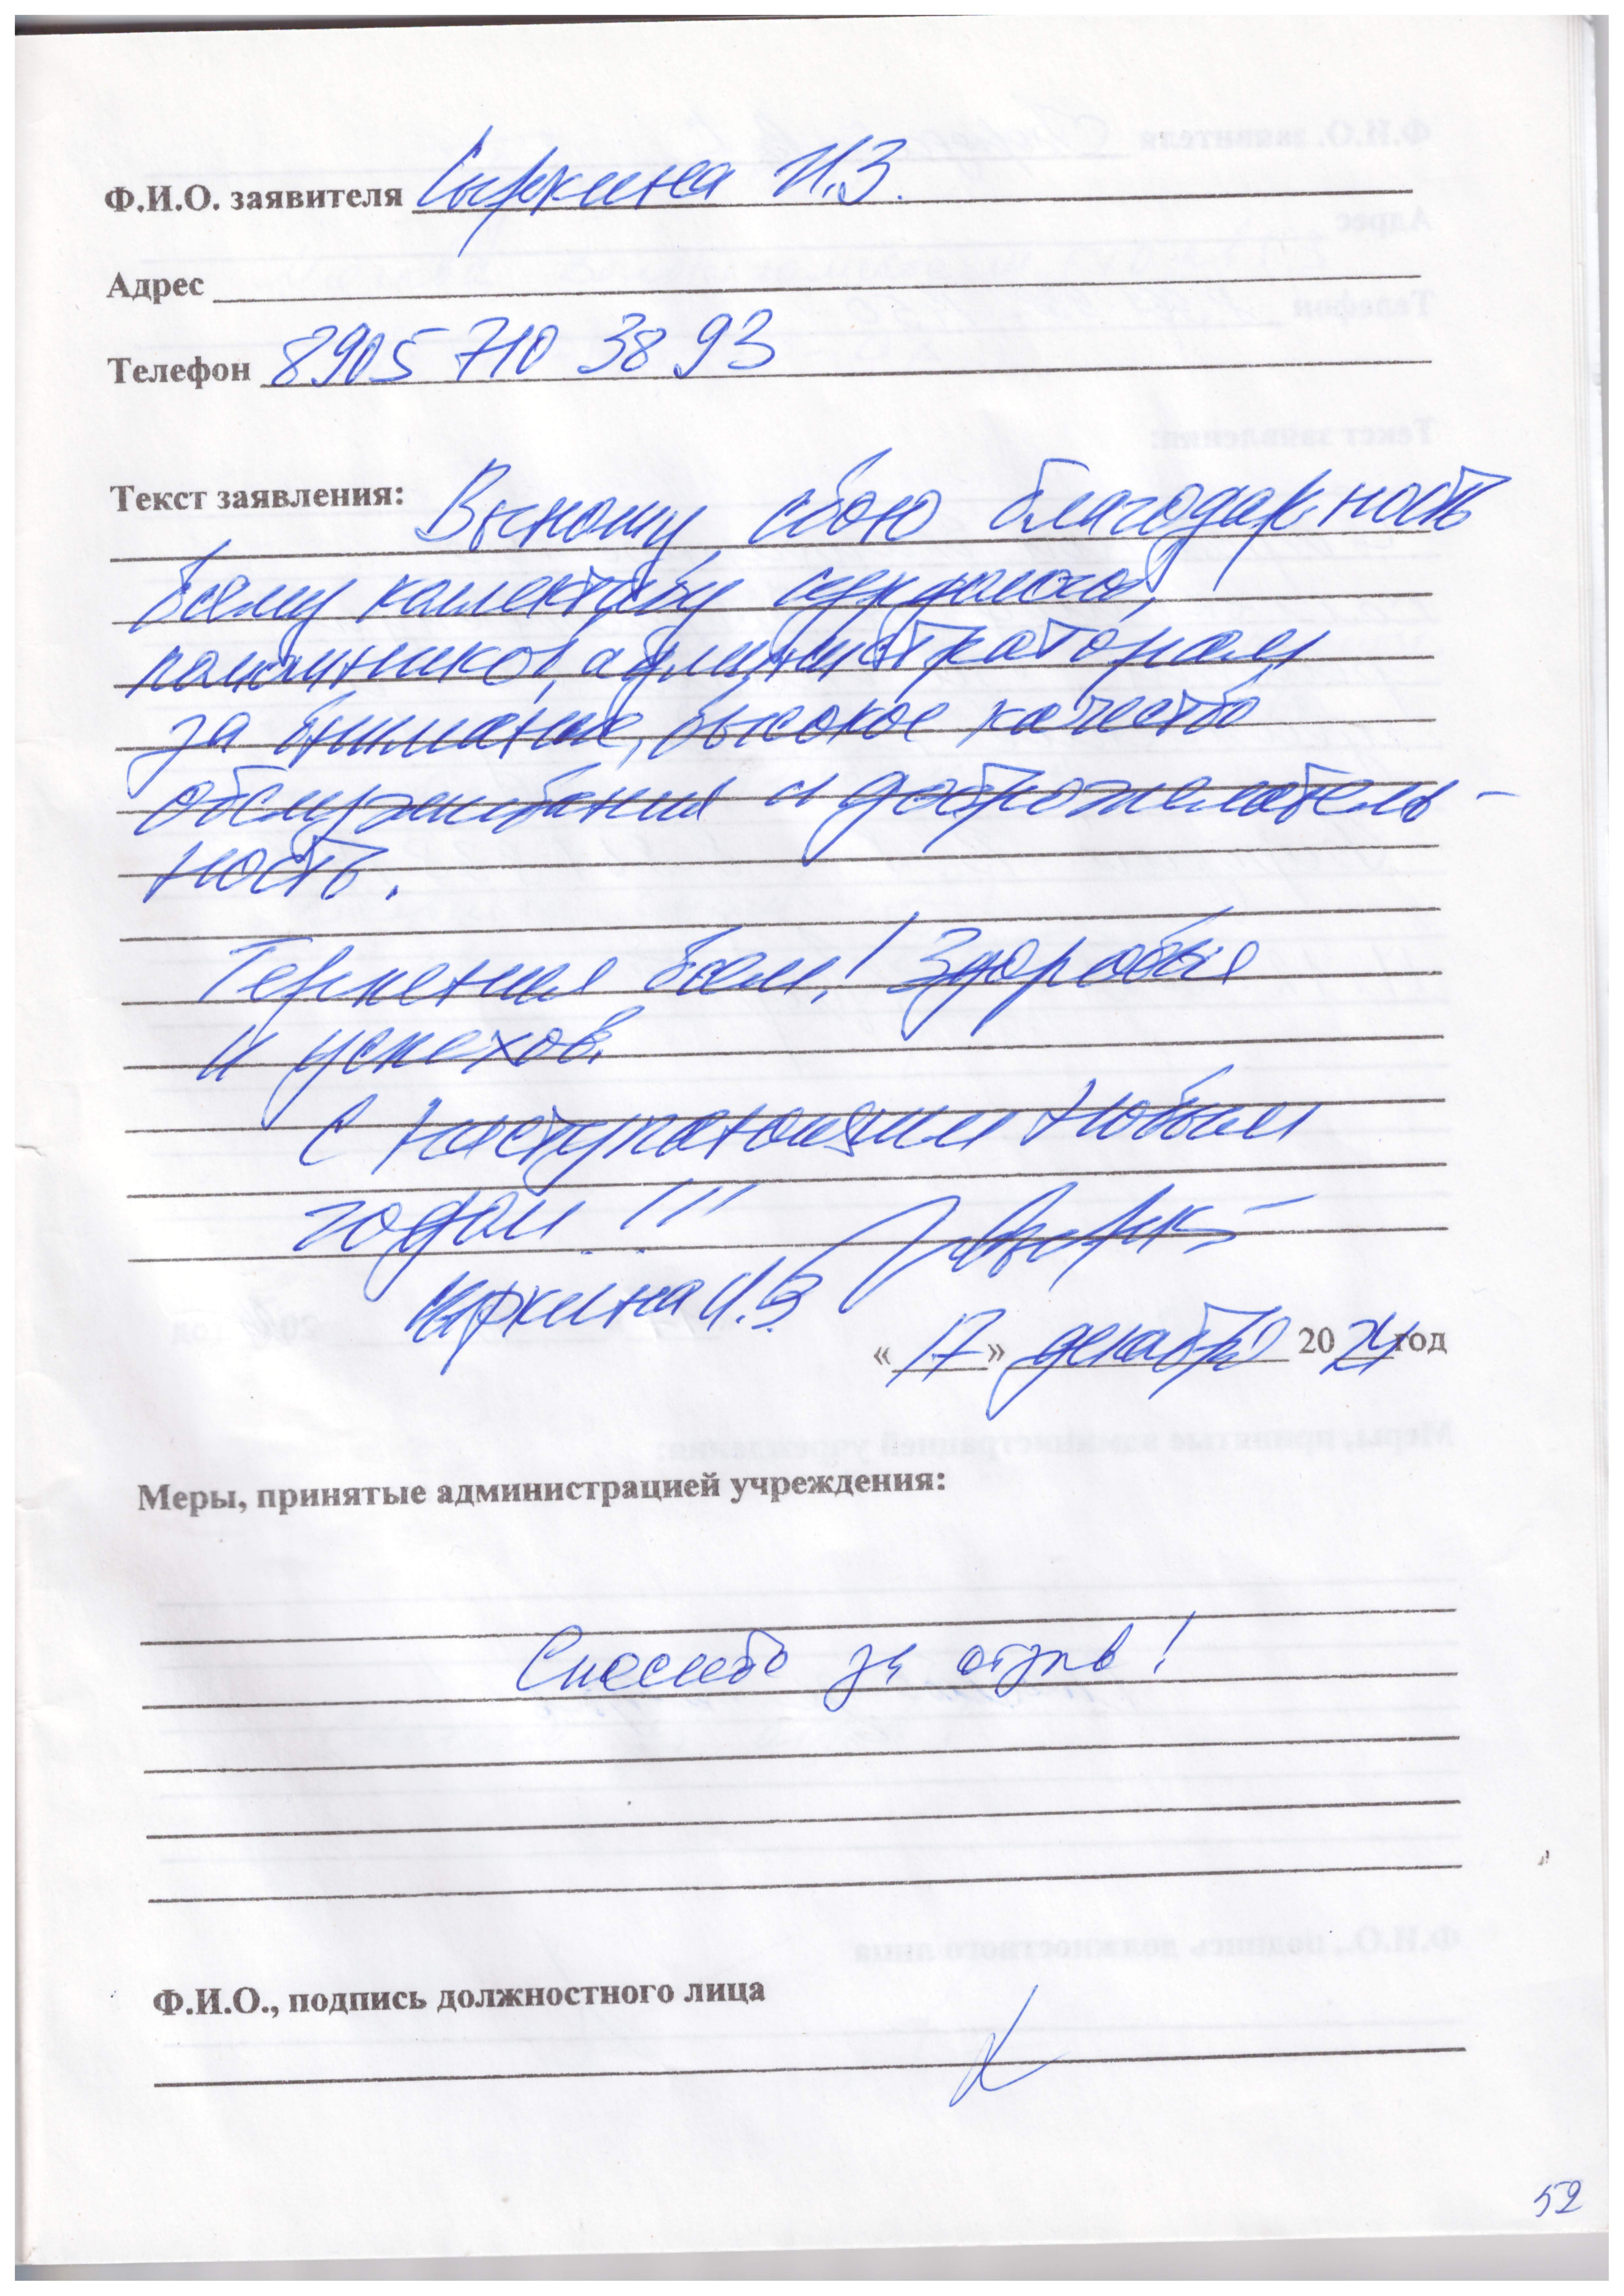 Ф.И.О. заявителя Сыркина И.З.
Адрес
Телефон 8905 710 38 93
Текст заявления: Выношу свою благодарность
всему коллективу
администраторам
за внимание, высокое качество
обслуживания и доброжелатель-
ность.
Терпения всем! Здоровья
и успехов.
С наступающим Новым
годом!!!
Сыркина И.З
« 17 » декабря 20 24 год
Меры, принятые администрацией учреждения:
Спасибо за отзыв!
Ф.И.О., подпись должностного лица
52